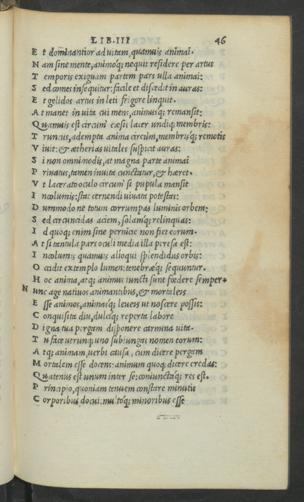 LIB·III 46
E t dominantior ad uitam, quamuis animai.
N am sine mente, animoq; nequit residere per artus
T emporis exiguam partem pars ulla animai:
S ed comes insequitur: facile et discedit in auras:
E t gelidos artus in leti frigore linquit.
A t manet in uita cui mens, animusq; remansit:
Quamuis est circum cæsis lacer undiq; membris:
T runcus, adempta anima circum, membrisq; remotis
V iuit: & ætherias uitales suspicit auras:
S i non omnimodis, at magna parte animai
P riuatus, tamen in uita cunctatur, & hæret.
V t lacerato oculo circum si pupula mansit
I ncolumis: stat cernendi uiuata potestas:
D ummodo ne totum corrumpas luminis orbem:
S ed circuncidas aciem, solamq; relinquas:
I d quoq; enim sine pernicie non fiet eorum.
A t si tantula pars oculi media illa peresa est:
I ncolumis quamuis alioqui splendidus orbis:
O ccidit extemplo lumen: tenebræq; sequuntur.
H oc anima, atq; animus iuncti sunt fœdere semper.
N unc age natiuos animantibus, & mortaleis
E sse animos, animasq; leueis ut noscere possis:
C onquisita diu, dulciq; reperta labore
D igna tua pergam disponere carmina uita.
T u fac utrunq; uno subiungas nomen eorum:
A tq; animam, uerbi causa, cum dicere pergam
M ortalem esse docens: animum quoq; dicere credas:
Quatenus est unum inter se: coniunctaq; res est.
P rincipio, quoniam tenuem constare minutis
C orporibus docui: multoq; minoribus esse